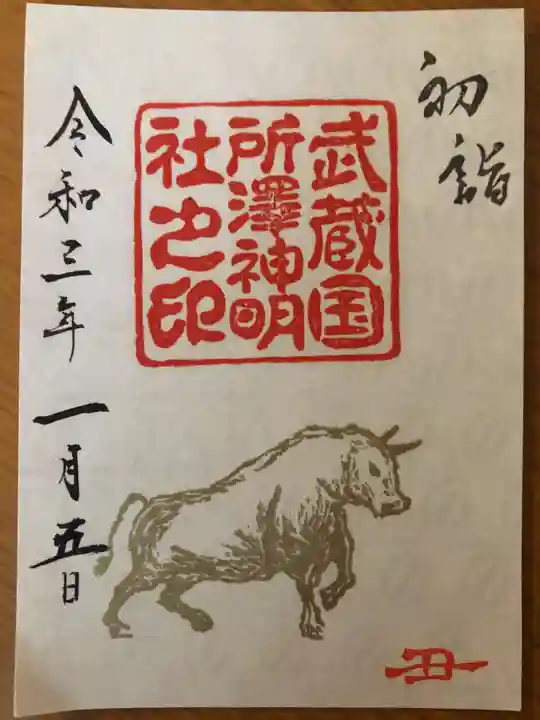 初詣
武蔵国
所澤神明
社之印
令和三年 一月五日
丑